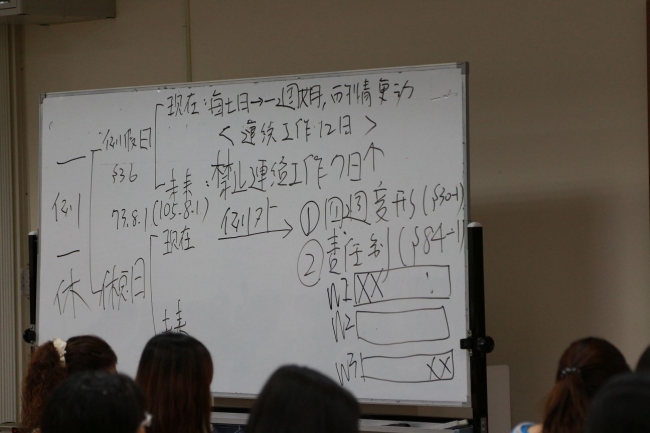 一例一休
例假日
§36
73.8.1
現在：每七日→一週期，
<連續工作12日>
未來：禁止連續工作7日↑
(105.8.1)
例外→①四週變形(§30-1)
②責任制(§84-1)
休息日
現在
未來
W1 XX
W2
W3 XX